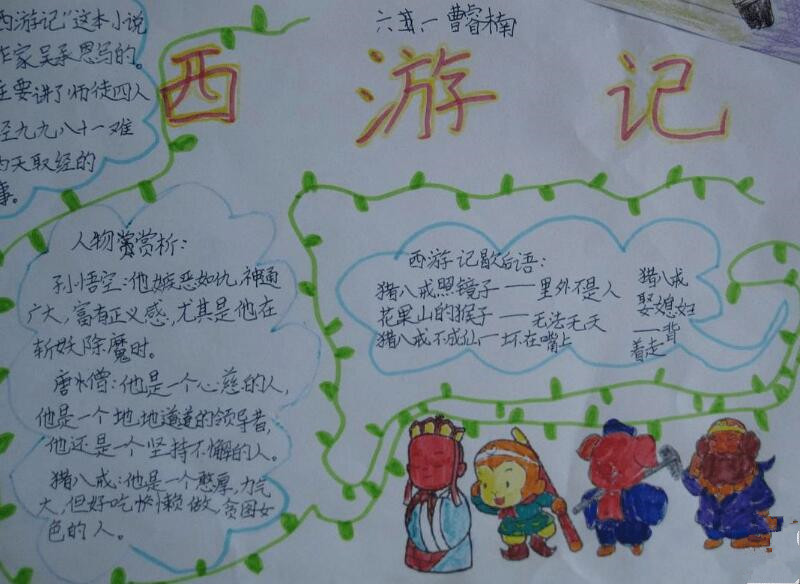 西游记"这本小说
作家吴承恩写的。
主要讲了师徒四人
经九九八十一难
西天取经的
事。
六 一 曹睿楠
西游记
人物赏析:
孙悟空:他嫉恶如仇,神通
广大,富有正义感,尤其是他在
斩妖除魔时。
唐僧:他是一个心慈的人,
他是一个地地道道的领导者,
他还是一个坚持不懈的人。
猪八戒:他是一个憨厚,力气
大,但好吃懒做,贪图女
色的人。
西游记歇后语:
猪八戒照镜子——里外不是人
花果山的猴子——无法无天
猪八戒不成仙—坏在嘴上
猪八戒
娶媳妇
—背
着走